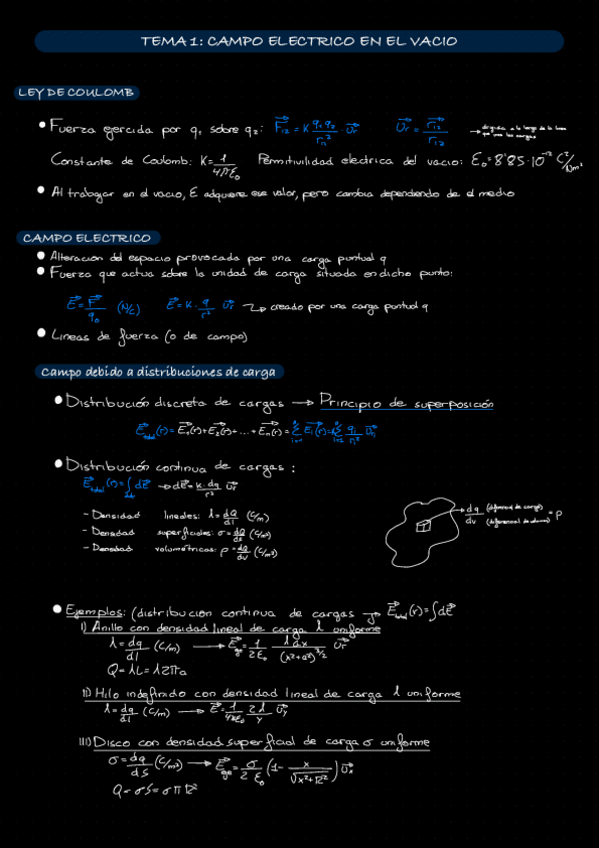 TEMA 1: CAMPO ELECTRICO EN EL VACIO
LEY DE COULOMB
Fuerza ejercida por q₁ sobre q₂: F₁₂ = K q₁q₂/r² · Ur Ur = r₁₂/r₁₂
Constante de Coulomb: K = 1/4πε₀ Permitividad electrica del vacio: ε₀ = 8'85·10⁻¹² C²/Nm²
Al trabajar en el vacio, ε adquiere ese valor, pero cambia dependiendo de el medio
CAMPO ELECTRICO
Alteracion del espacio provocada por una carga puntual q
Fuerza que actua sobre la unidad de carga situada en dicho punto:
E = F/q₀ (N/C) E = K · q/r² Ur → creado por una carga puntual q
Lineas de fuerza (o de campo)
Campo debido a distribuciones de carga
Distribución discreta de cargas → Principio de superposición
Distribución continua de cargas:
E total (r) = ∫ dE → dE = K·dq/r² Ur
- Densidad lineales: λ = dQ/dl (C/m)
- Densidad superficiales: σ = dQ/ds (C/m²)
- Densidad volumétricas: ρ = dQ/dv (C/m³)
dq/dv (diferencial de carga) (diferencial de volumen) = ρ
Ejemplos: (distribucion continua de cargas → E total (r) = ∫dE
I) Anillo con densidad lineal de carga λ uniforme
λ = dq/dl (C/m) → E = 1/2ε₀ λ a x/(x²+a²)^3/2 Ur
Q = λL = λ2πa
II) Hilo indefinido con densidad lineal de carga λ uniforme
λ = dq/dl (C/m) → E = 1/4πε₀ 2λ/y Uy
III) Disco con densidad superficial de carga σ uniforme
σ = dq/dS (C/m²) → E = σ/2ε₀ (1 - x/√x²+R²) Ux
Q = σS = σπR²